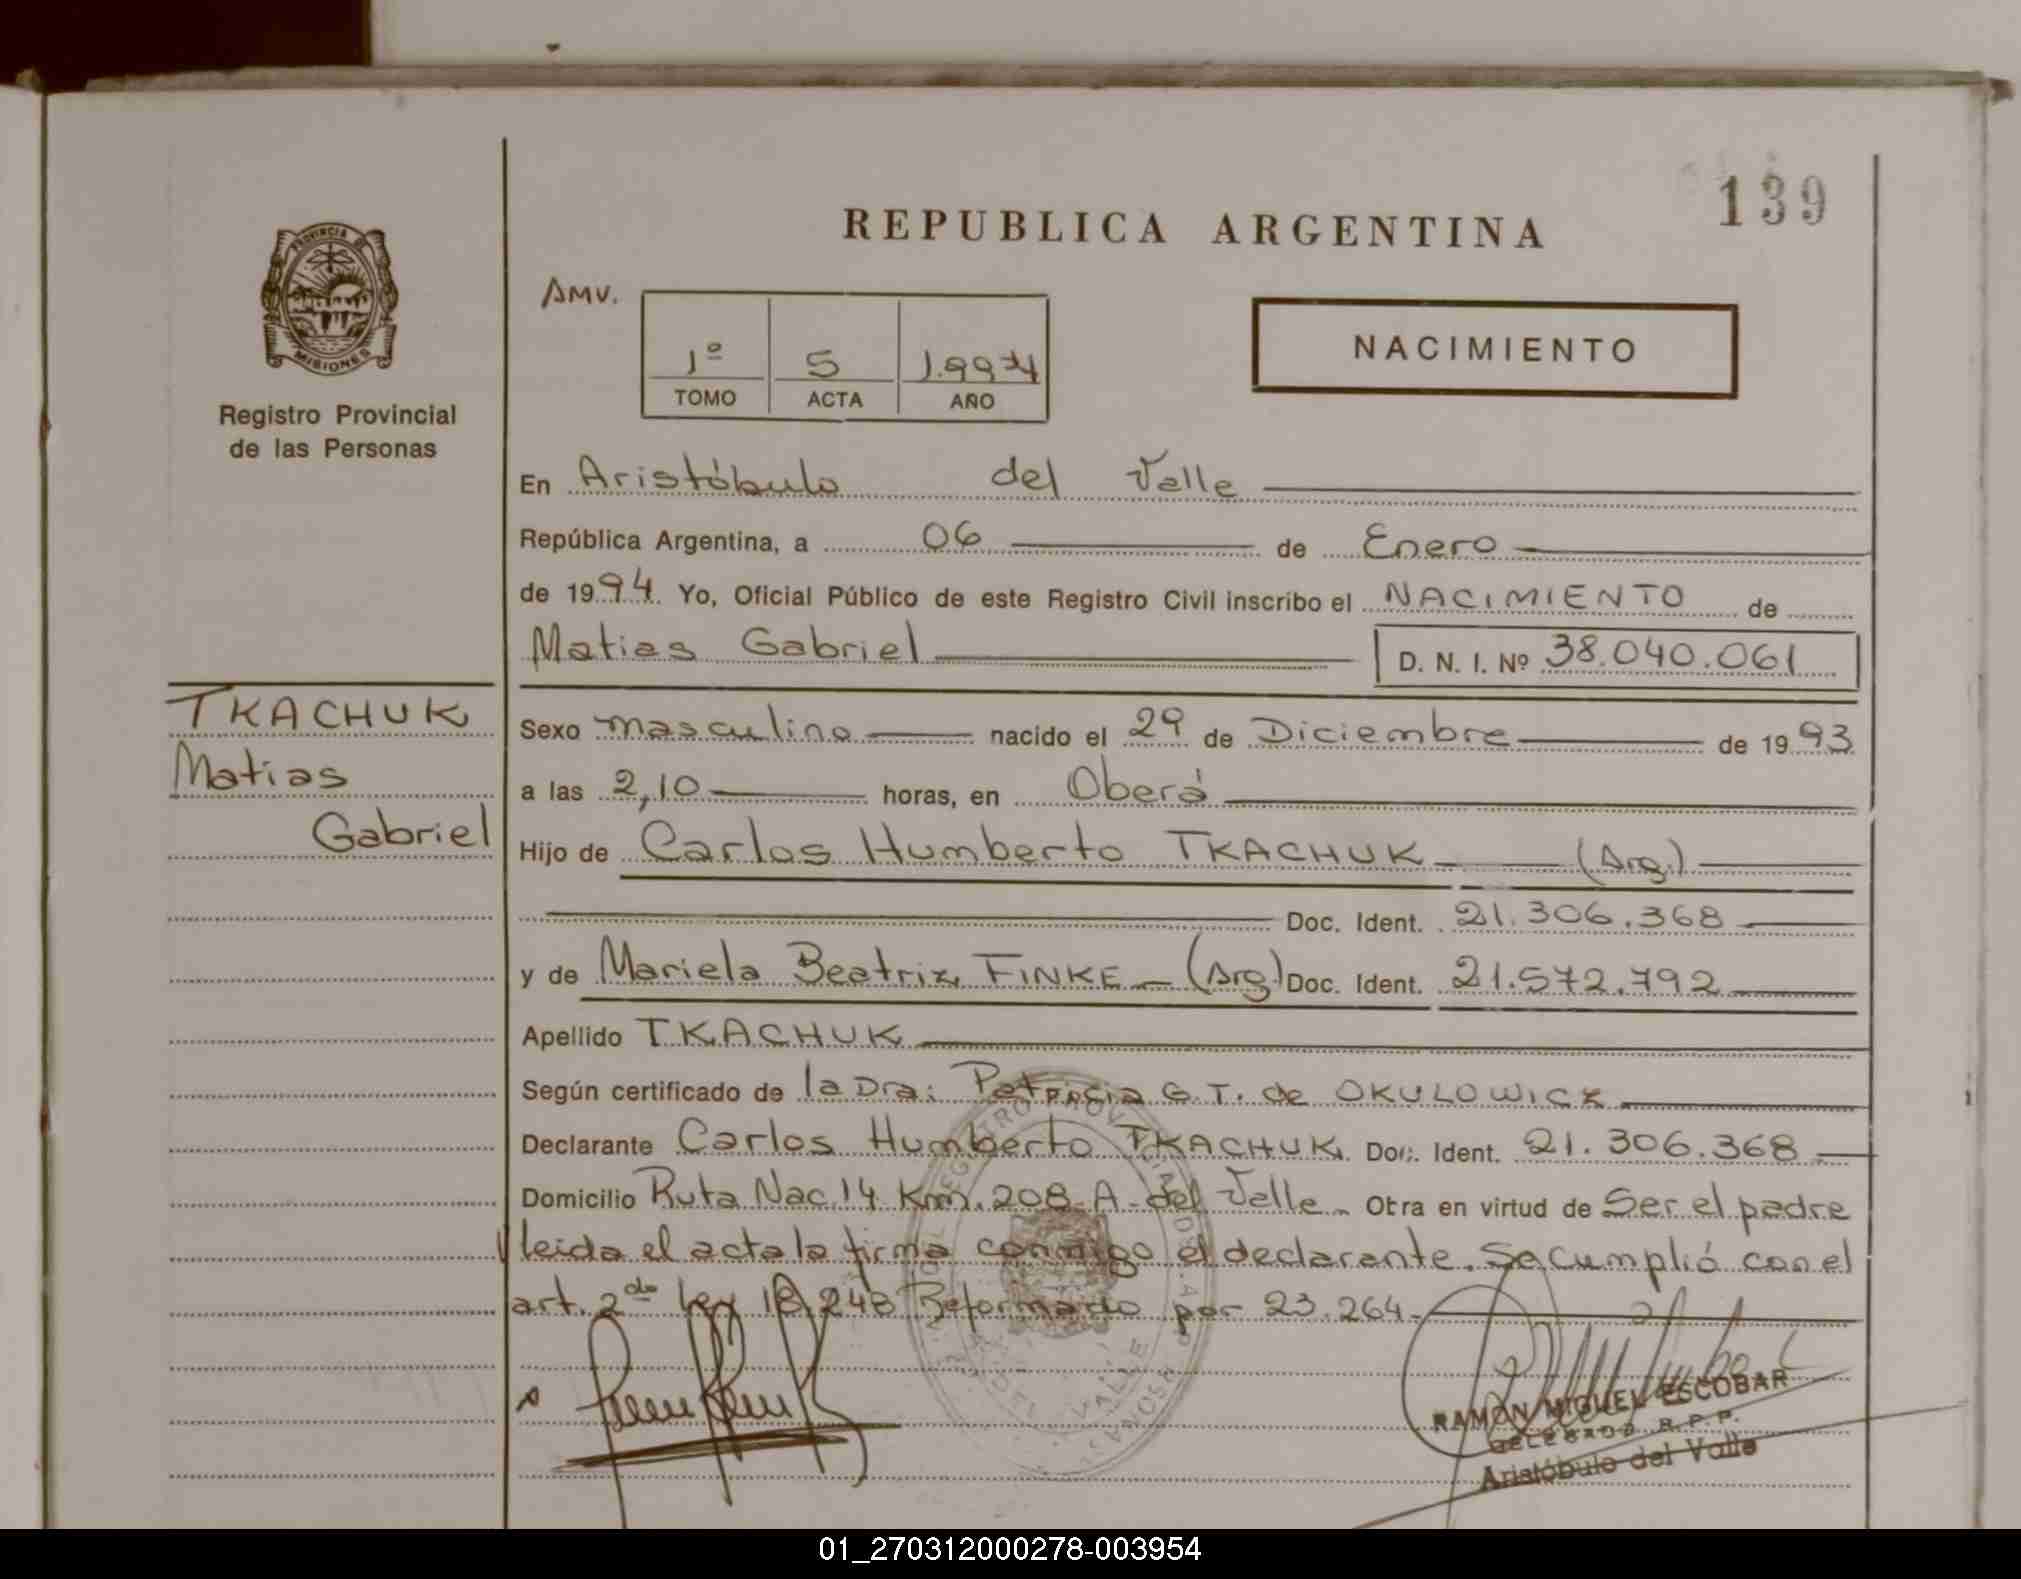 139
REPUBLICA ARGENTINA
PROVINCIA DE
MISIONES
Registro Provincial
de las Personas
AMV.
1º 5 1.994
TOMO ACTA AÑO
NACIMIENTO
En Aristóbulo del Valle
República Argentina, a 06 de Enero
de 1994 Yo, Oficial Público de este Registro Civil inscribo el NACIMIENTO de
Matias Gabriel D. N. I. Nº 38.040.061
TKACHUK
Matias
Gabriel
Sexo masculino nacido el 29 de Diciembre de 1993
a las 2,10 horas, en Oberá
Hijo de Carlos Humberto TKACHUK (Arg.)
Doc. Ident. 21.306.368
y de Mariela Beatriz FINKE (Arg.) Doc. Ident. 21.572.792
Apellido TKACHUK
Según certificado de la Dra: Patricia G. T. de OKULOWICZ
Declarante Carlos Humberto TKACHUK Doc. Ident. 21.306.368
Domicilio Ruta Nac. 14 Km. 208 A. del Valle Otra en virtud de Ser el padre
leida el acta la firma conmigo el declarante. Se cumplió con el
art. 2do ley 18.248 Reformado por 23.264
RAMON MIGUEL ESCOBAR
DELEGADO R.P.P.
Aristóbulo del Valle
01_270312000278-003954